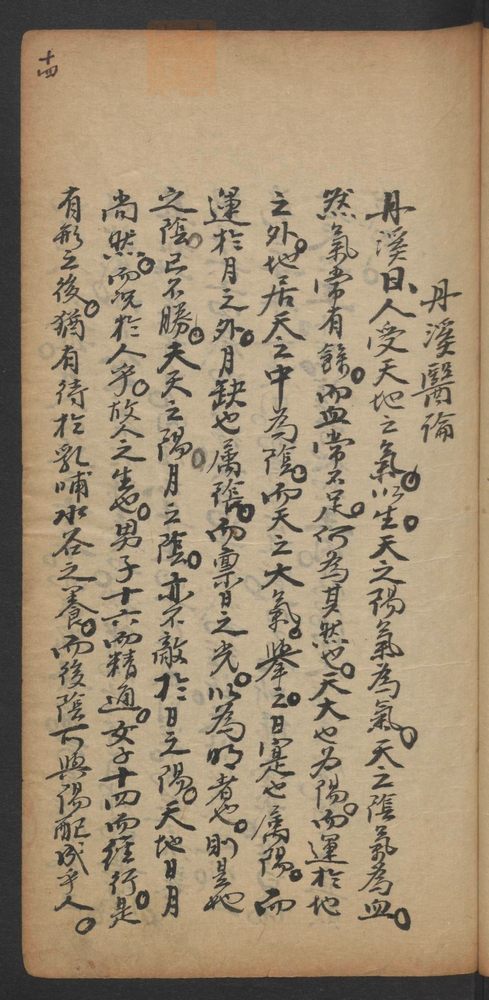 十四
丹溪醫倫
丹溪曰、人受天地之氣。以生天之陽氣為氣。天之陰氣為血。
然氣常有餘。而血常不足。何為其然也。天大也為陽。而運於地
之外。地居天之中為陰。而天之大氣舉之。日寔也屬陽。而
運於月之外。月缺也屬陰。而稟日之光。以為明者也。則是地
之陰。已不勝。夫天之陽。月之陰。亦不敵於日之陽。天地日月
尚然。而況於人乎。故人之生也。男子十六而精通。女子十四而經行。是
有形之後。猶有待於乳哺水谷之養。而後陰可與陽配成乎人。